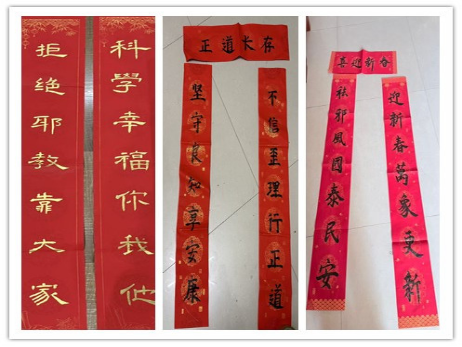 科學幸福你我他
拒绝邪教靠大家
正道长存
不信歪理行正道
坚守良知享安康
喜迎新春
迎新春萬家更新
祛邪風國泰民安